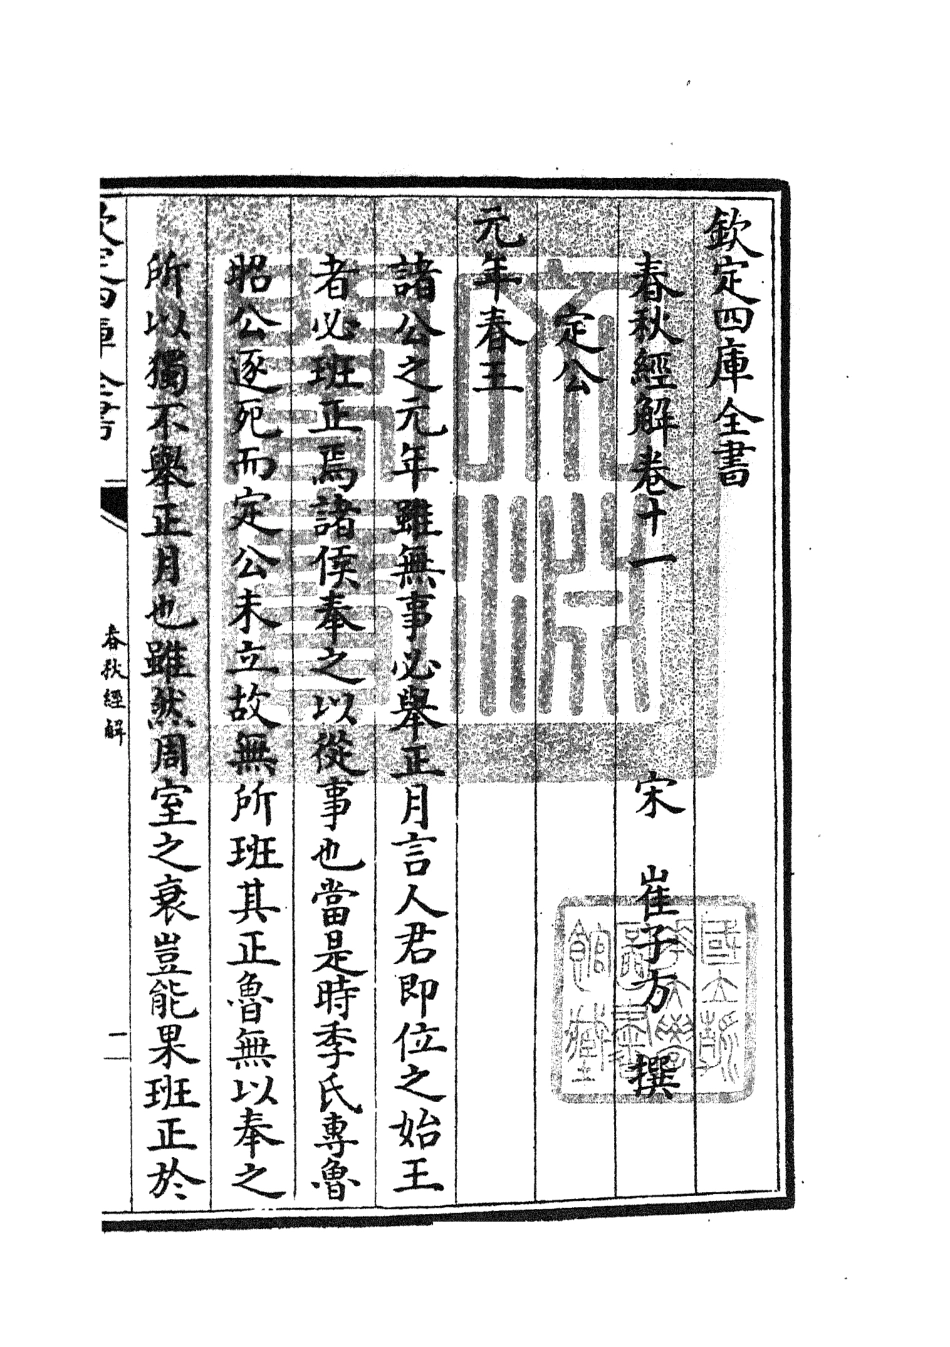 欽定四庫全書
春秋經解卷十一　宋　崔子方　撰
定公
元年春王
諸公之元年雖無事必舉正月言人君即位之始王
者必班正焉諸侯奉之以從事也當是時季氏專魯
昭公逐死而定公未立故無所班其正魯無以奉之
所以獨不舉正月也雖然周室之衰豈能果班正於
欽定四庫全書
春秋經解
一